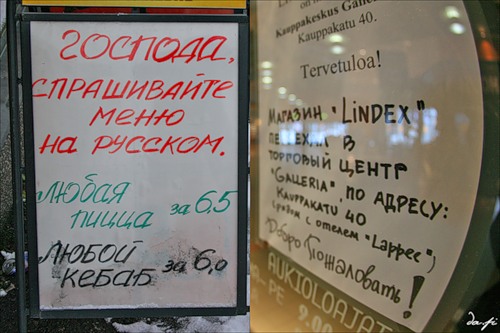 ГОСПОДА,
СПРАШИВАЙТЕ
МЕНЮ
НА РУССКОМ.
ЛЮБАЯ
ПИЦЦА за 6,5
ЛЮБОЙ
КЕБАБ за 6,0
Kauppakeskus
Kauppakatu 40.
Tervetuloa!
МАГАЗИН "LINDEX"
ПЕРЕЕХАЛ В
ТОРГОВЫЙ ЦЕНТР
"GALLERIA", ПО АДРЕСУ:
KAUPPAKATU 40
(рядом с отелем "Lappee")
Добро Пожаловать!
AUKIOLOAJAT
-PE